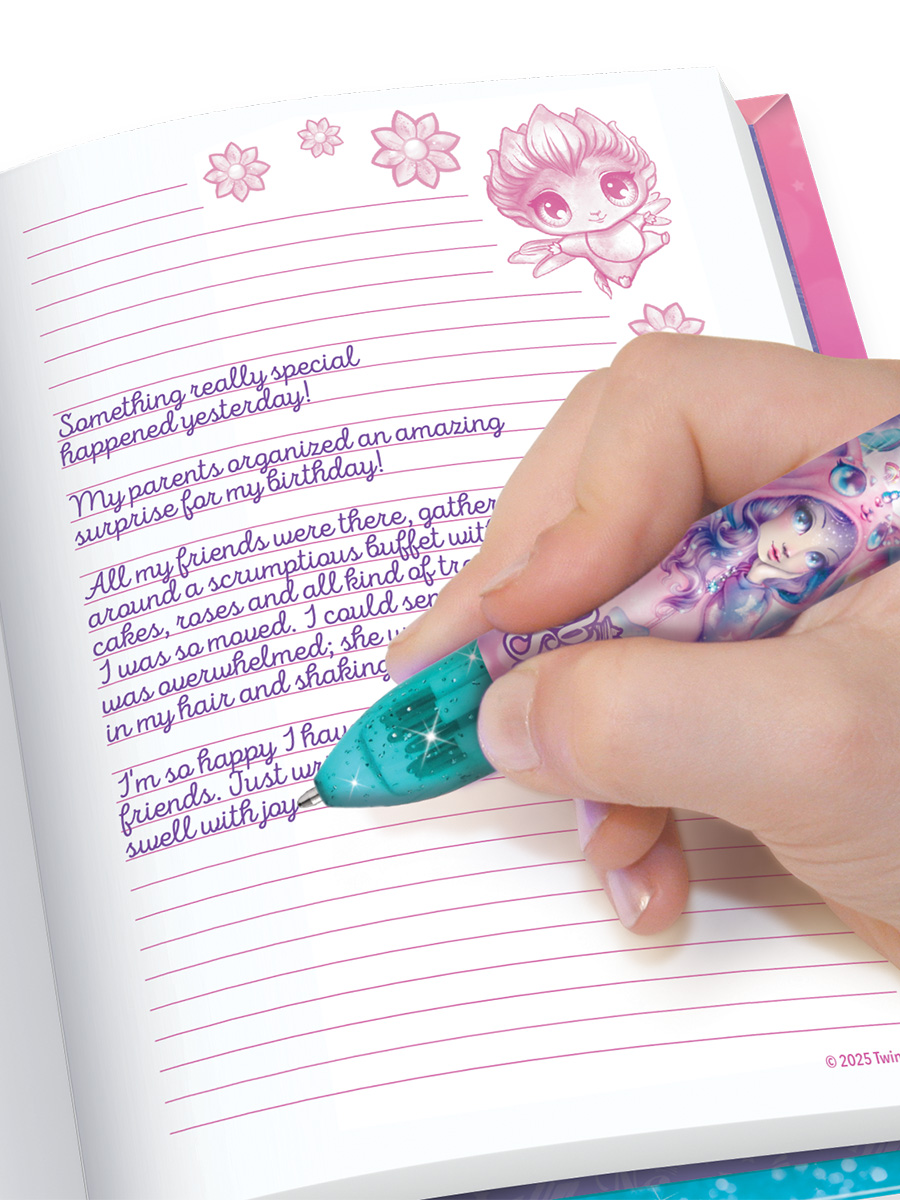 Something really special
happened yesterday!
My parents organized an amazing
surprise for my birthday!
All my friends were there,
around a scrumptious buffet
cakes, roses and all kind of
I was so moved. I could
was overwhelmed; she
in my hair and shaking
I'm so happy I
friends. Just
swell with joy
© 2025